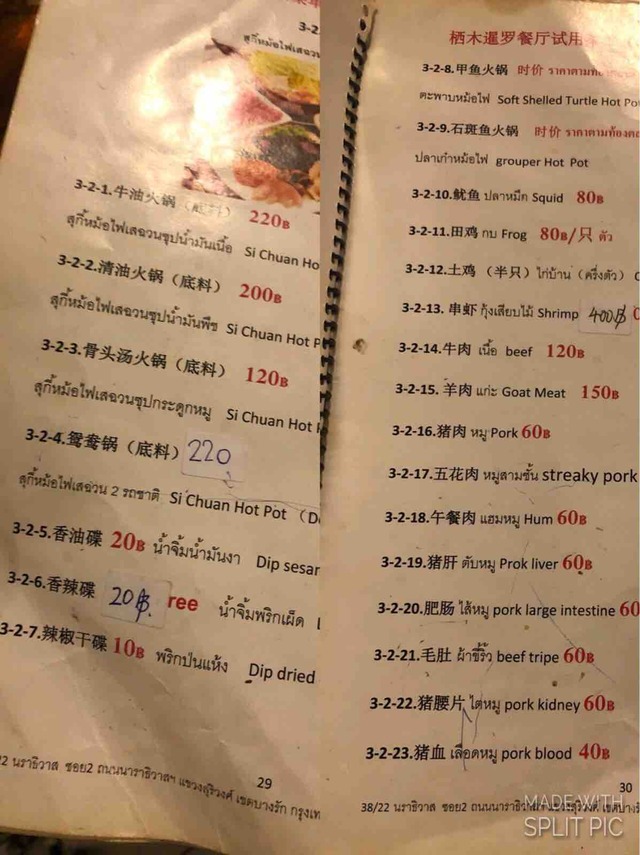 3-2
สุกี้หม้อไฟเสฉวน
3-2-1.牛油火锅（底料） 220B
สุกี้หม้อไฟเสฉวนซุปน้ำมันเนื้อ Si Chuan Ho
3-2-2.清油火锅（底料） 200B
สุกี้หม้อไฟเสฉวนซุปน้ำมันพืช Si Chuan Hot P
3-2-3.骨头汤火锅（底料） 120B
สุกี้หม้อไฟเสฉวนซุปกระดูกหมู Si Chuan Hot
3-2-4.鸳鸯锅（底料） 220
สุกี้หม้อไฟเสฉวน 2 รสชาติ Si Chuan Hot Pot （D
3-2-5.香油碟 20B น้ำจิ้มน้ำมันงา Dip sesar
3-2-6.香辣碟 20฿. ree น้ำจิ้มพริกเผ็ด
3-2-7.辣椒干碟 10B พริกป่นแห้ง Dip dried
22 นราธิวาส ซอย2 ถนนนราธิวาสฯ แขวงสุริวงศ์ เขตบางรัก กรุงเท
29
栖木暹罗餐厅试用
3-2-8.甲鱼火锅 时价 ราคาตามท้อง
ตะพาบหม้อไฟ Soft Shelled Turtle Hot Po
3-2-9.石斑鱼火锅 时价 ราคาตามท้องต
ปลาเก๋าหม้อไฟ grouper Hot Pot
3-2-10.鱿鱼 ปลาหมึก Squid 80B
3-2-11.田鸡 กบ Frog 80B/只 ตัว
3-2-12.土鸡 （半只）ไก่บ้าน（ครึ่งตัว） C
3-2-13. 串虾 กุ้งเสียบไม้ Shrimp 400฿
3-2-14.牛肉 เนื้อ beef 120B
3-2-15. 羊肉 แกะ Goat Meat 150B
3-2-16.猪肉 หมู Pork 60B
3-2-17.五花肉 หมูสามชั้น streaky pork
3-2-18.午餐肉 แฮมหมู Hum 60B
3-2-19.猪肝 ตับหมู Prok liver 60B
3-2-20.肥肠 ไส้หมู pork large intestine 60
3-2-21.毛肚 ผ้าขี้ริ้ว beef tripe 60B
3-2-22.猪腰片 ไตหมู pork kidney 60B
3-2-23.猪血 เลือดหมู pork blood 40B
30
38/22 นราธิวาส ซอย2 ถนนนราธิวาสฯ แขวงสุริวงศ์ เขตบาง
MADE WITH
SPLIT PIC